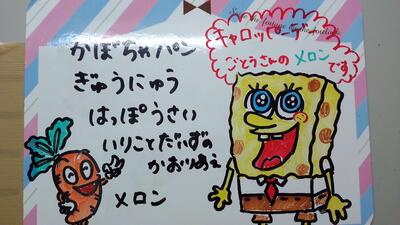 かぼちゃパン
ぎゅうにゅう
はっぽうさい
いりことだいずの
かおりあえ
メロン
キャロッピー
ごとうさんのメロン
です